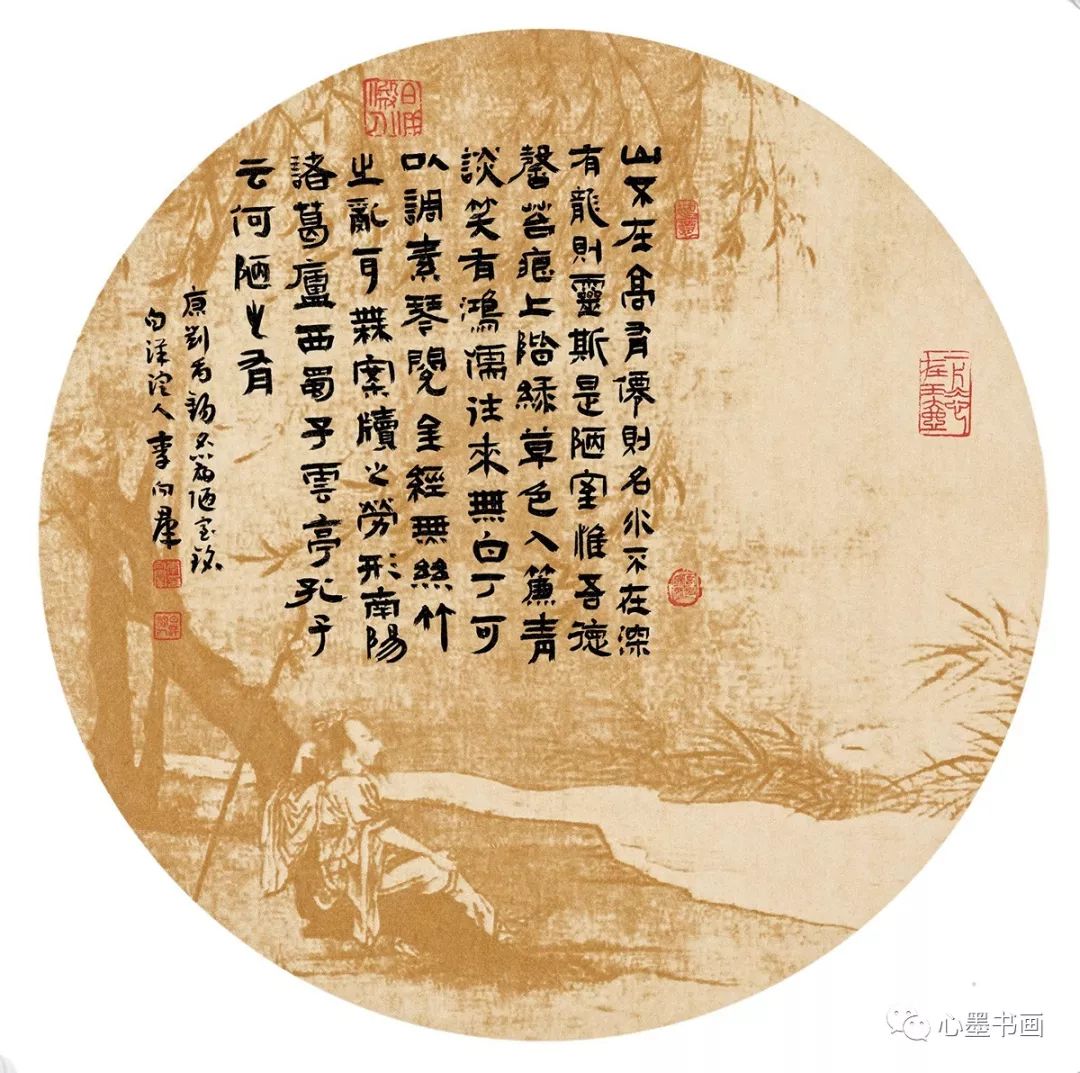 山不在高有僊則名水不在深
有龍則靈斯是陋室惟吾德
馨苔痕上階綠草色入簾青
談笑有鴻儒往來無白丁可
以調素琴閱金經無絲竹
之亂耳無案牘之勞形南陽
諸葛廬西蜀子雲亭孔子
云何陋之有
唐劉禹錫名篇陋室銘
白洋淀人李向群
心墨书画